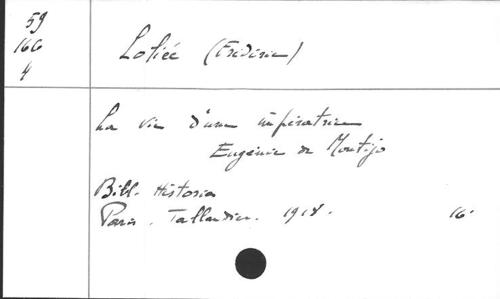 59
166
4
Loliée (Frédéric)
La vie d'une impératrice
Eugénie de Montijo
Bibl. Historia
Paris. Tallandier. 1918.
16°